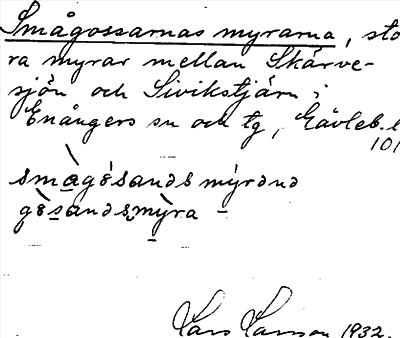 Smågossarnas myrarna, sto
ra myrar mellan Skärve-
sjön och Sivikstjärn i
Enångers sn och tg, Gävleb. l.
101
smàgǿsands mýrənə
gøsands mỳra –
Lars Larson 1932.